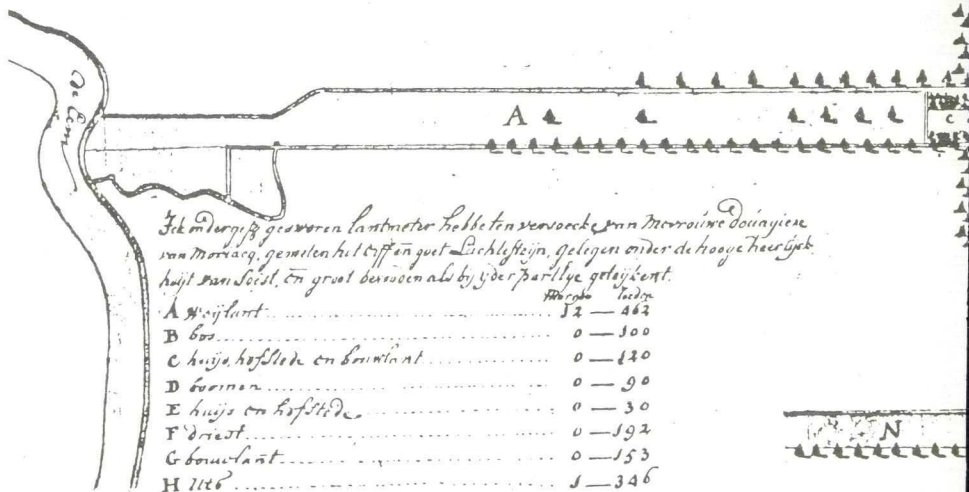 De Eem
A
C
Ick ondergesz gesworen lantmeter hebbe ten versoecke van Mevrouwe douagiere
van gemeten het en goet Lichtesteijn, gelegen onder de hooge heerlijck
heijt van Soist, en groot bevonden als bij yder partye geteijkent.
Morgen roeden
A weijlant 12 — 462
B bos 0 — 100
C huijs, hofstede en bouwlant 0 — 120
D boomen 0 — 90
E huijs en hofstede 0 — 30
F driest 0 — 192
G bouwlant 0 — 153
H 1 — 346
N